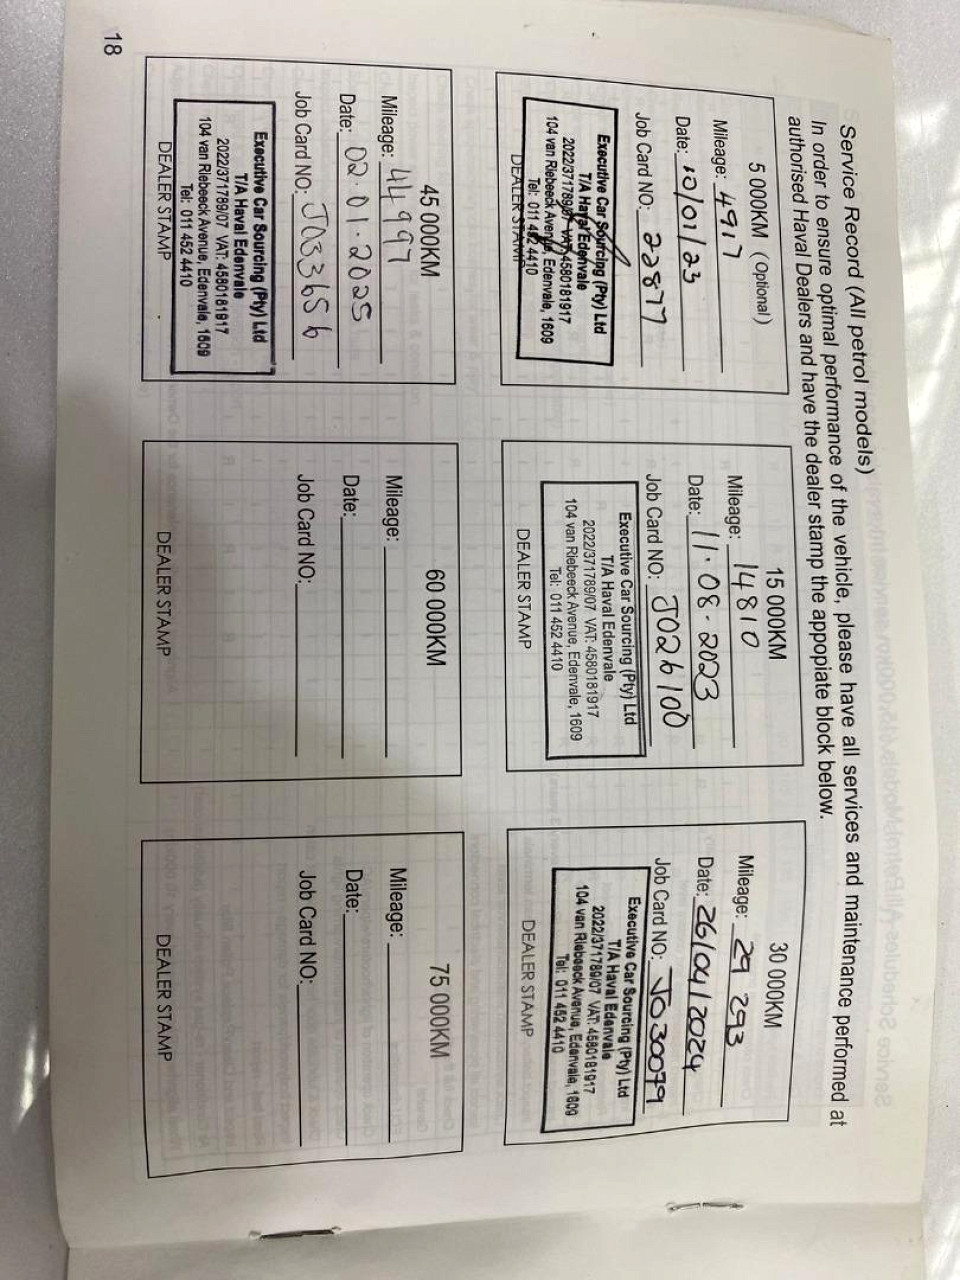 Service Record (All petrol models)
In order to ensure optimal performance of the vehicle, please have all services and maintenance performed at
authorised Haval Dealers and have the dealer stamp the appopiate block below.
5 000KM (Optional)
Mileage: 4917
Date: 10/01/23
Job Card NO: 22877
Executive Car Sourcing (Pty) Ltd
T/A Haval Edenvale
2022/371789/07 VAT: 4580181917
104 van Riebeeck Avenue, Edenvale, 1609
Tel: 011 452 4410
DEALER STAMP
15 000KM
Mileage: 14810
Date: 11.08.2023
Job Card NO: J026100
Executive Car Sourcing (Pty) Ltd
T/A Haval Edenvale
2022/371789/07 VAT: 4580181917
104 van Riebeeck Avenue, Edenvale, 1609
Tel: 011 452 4410
DEALER STAMP
30 000KM
Mileage: 29 293
Date: 26/04/2024
Job Card NO: J030079
Executive Car Sourcing (Pty) Ltd
T/A Haval Edenvale
2022/371789/07 VAT: 4580181917
104 van Riebeeck Avenue, Edenvale, 1609
Tel: 011 452 4410
DEALER STAMP
45 000KM
Mileage: 44997
Date: 02.01.2025
Job Card NO: J033656
Executive Car Sourcing (Pty) Ltd
T/A Haval Edenvale
2022/371789/07 VAT: 4580181917
104 van Riebeeck Avenue, Edenvale, 1609
Tel: 011 452 4410
DEALER STAMP
60 000KM
Mileage:
Date:
Job Card NO:
DEALER STAMP
75 000KM
Mileage:
Date:
Job Card NO:
DEALER STAMP
18